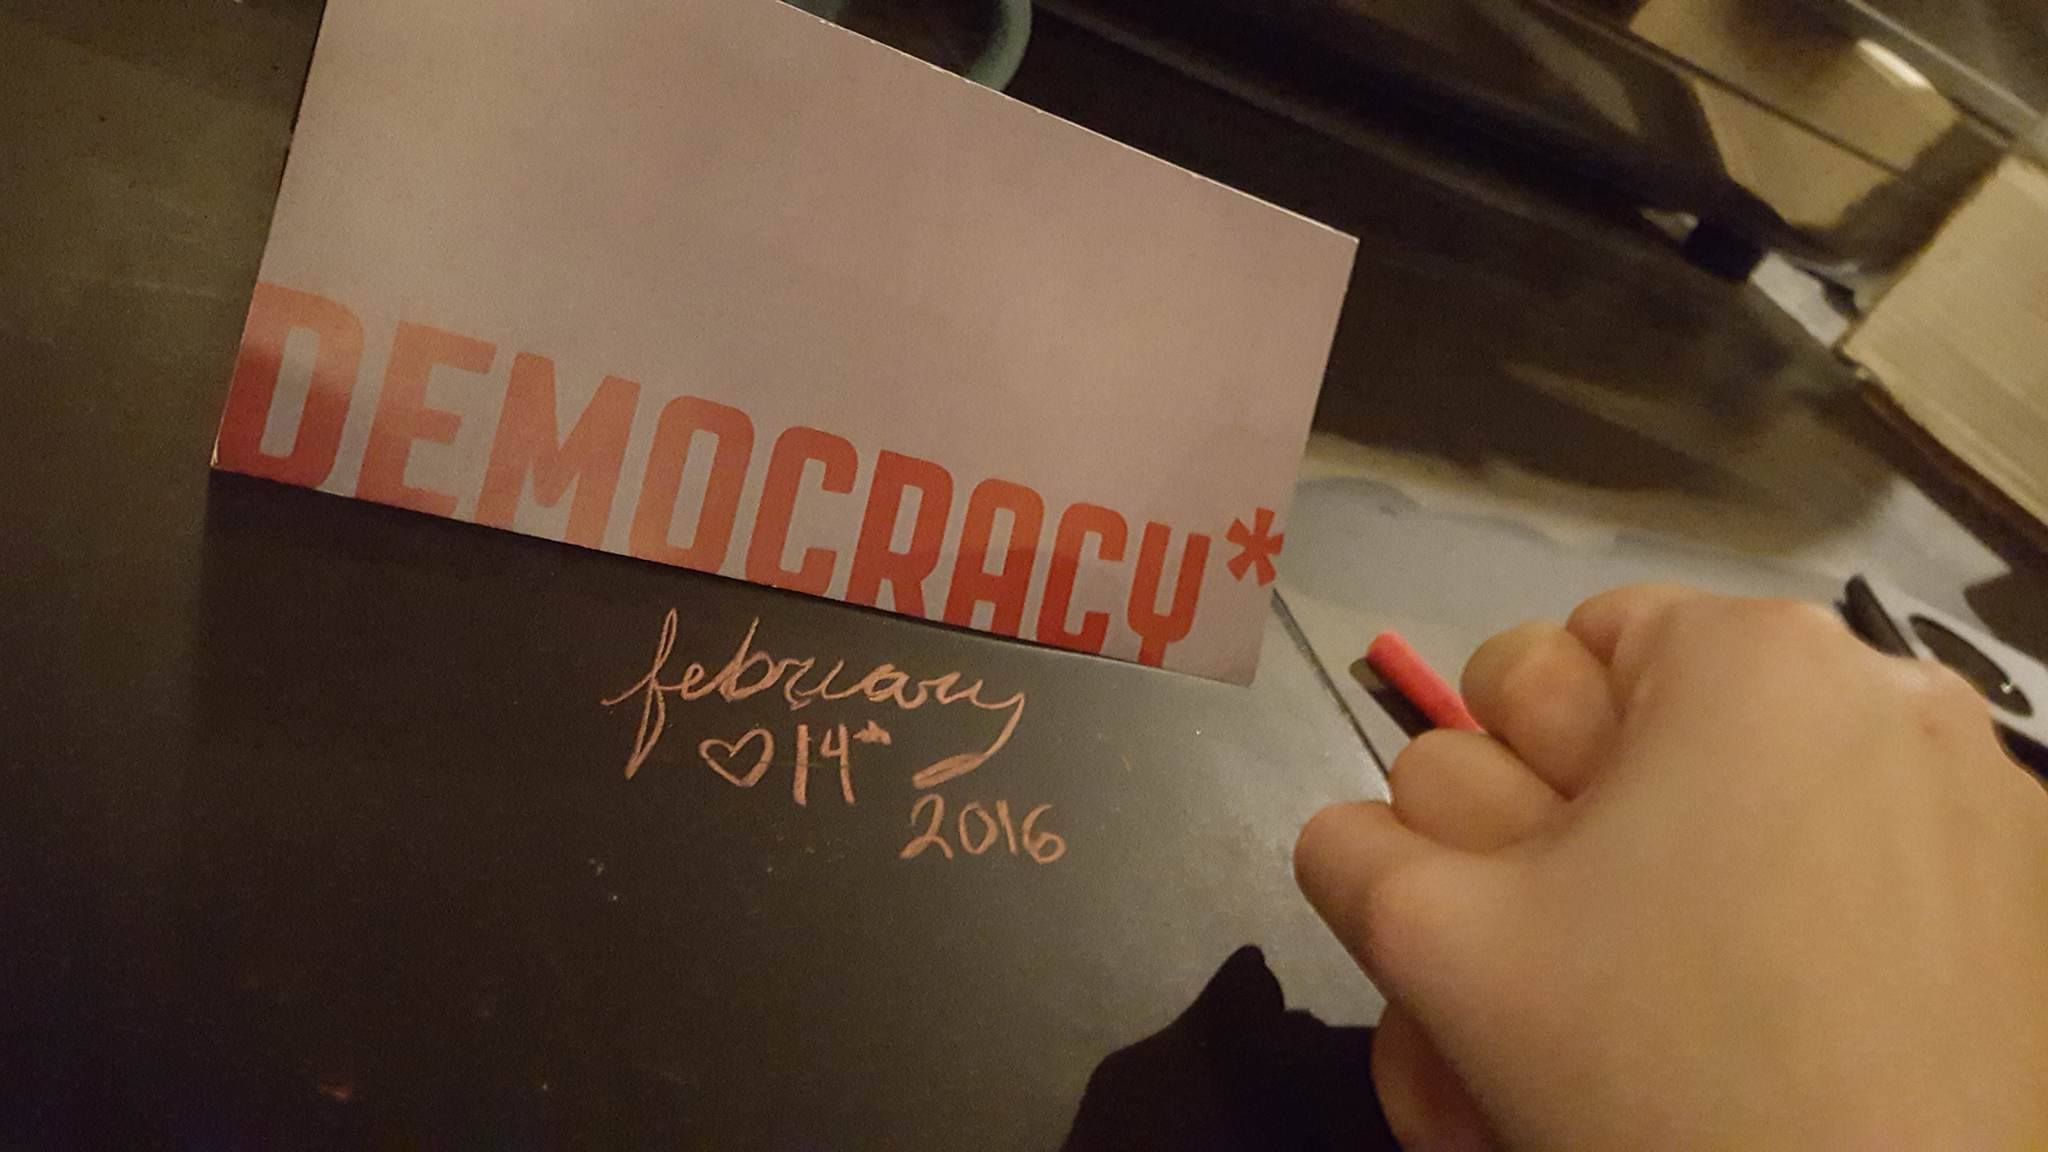 DEMOCRACY*
february
♡ 14th
2016